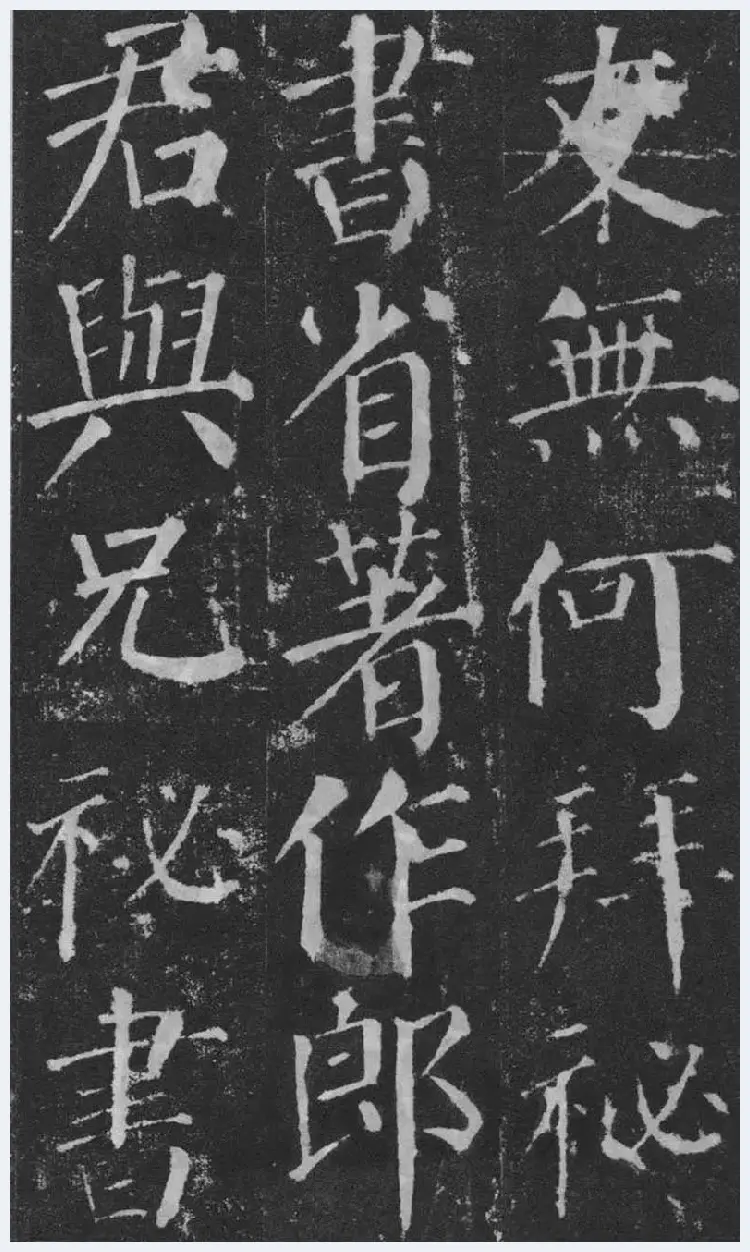 無何拜祕
書省著作郎
君與兄祕書